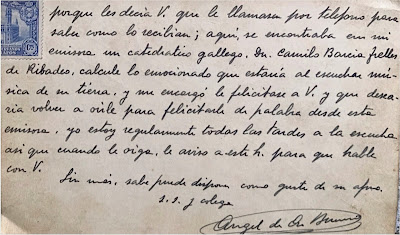 porque les decía V. que le llamasen por telefono para
saber como lo recibian; aquí, se encontraba en mi
emisora un catedratico gallego, Dn. Camilo Barcia Trelles
de Ribadeo, calcule lo emocionado que estaria al escuchar mú-
sica de su tierra, y me encargó le felicitase a V. y que desea-
ria volver a oirle para felicitarle de palabra desde esta
emisora, yo estoy regularmente todas las tardes a la escucha
asi que cuando le oiga, le aviso a este Sr. para que hable
con V.
Sin más, sabe puede disponer como guste de su afmo.
s.s. y colega
Angel de